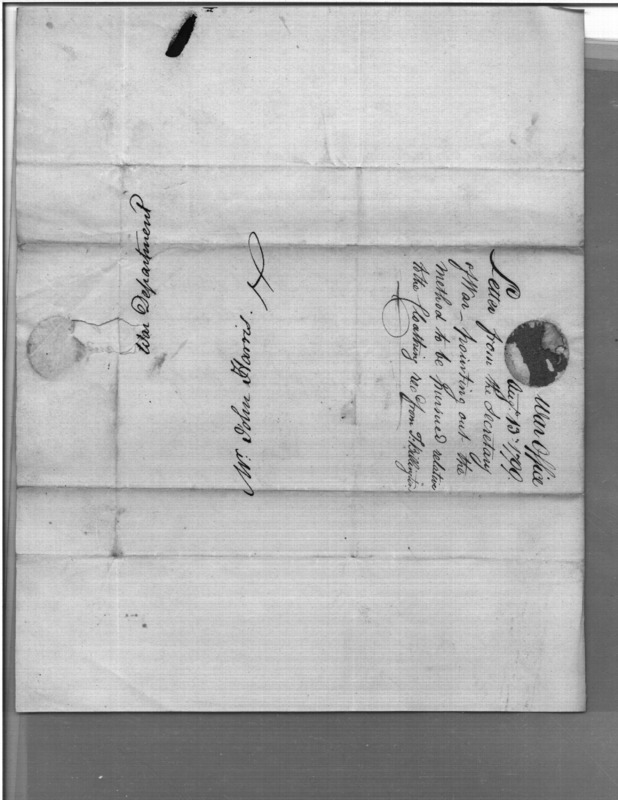 War Department
Mr. John Harris.
War Office
Augt. 13. 1799.
Letter from the Secretary
of War – pointing out the
method to be pursued relative
to the Cloathing recd. from T. Billington